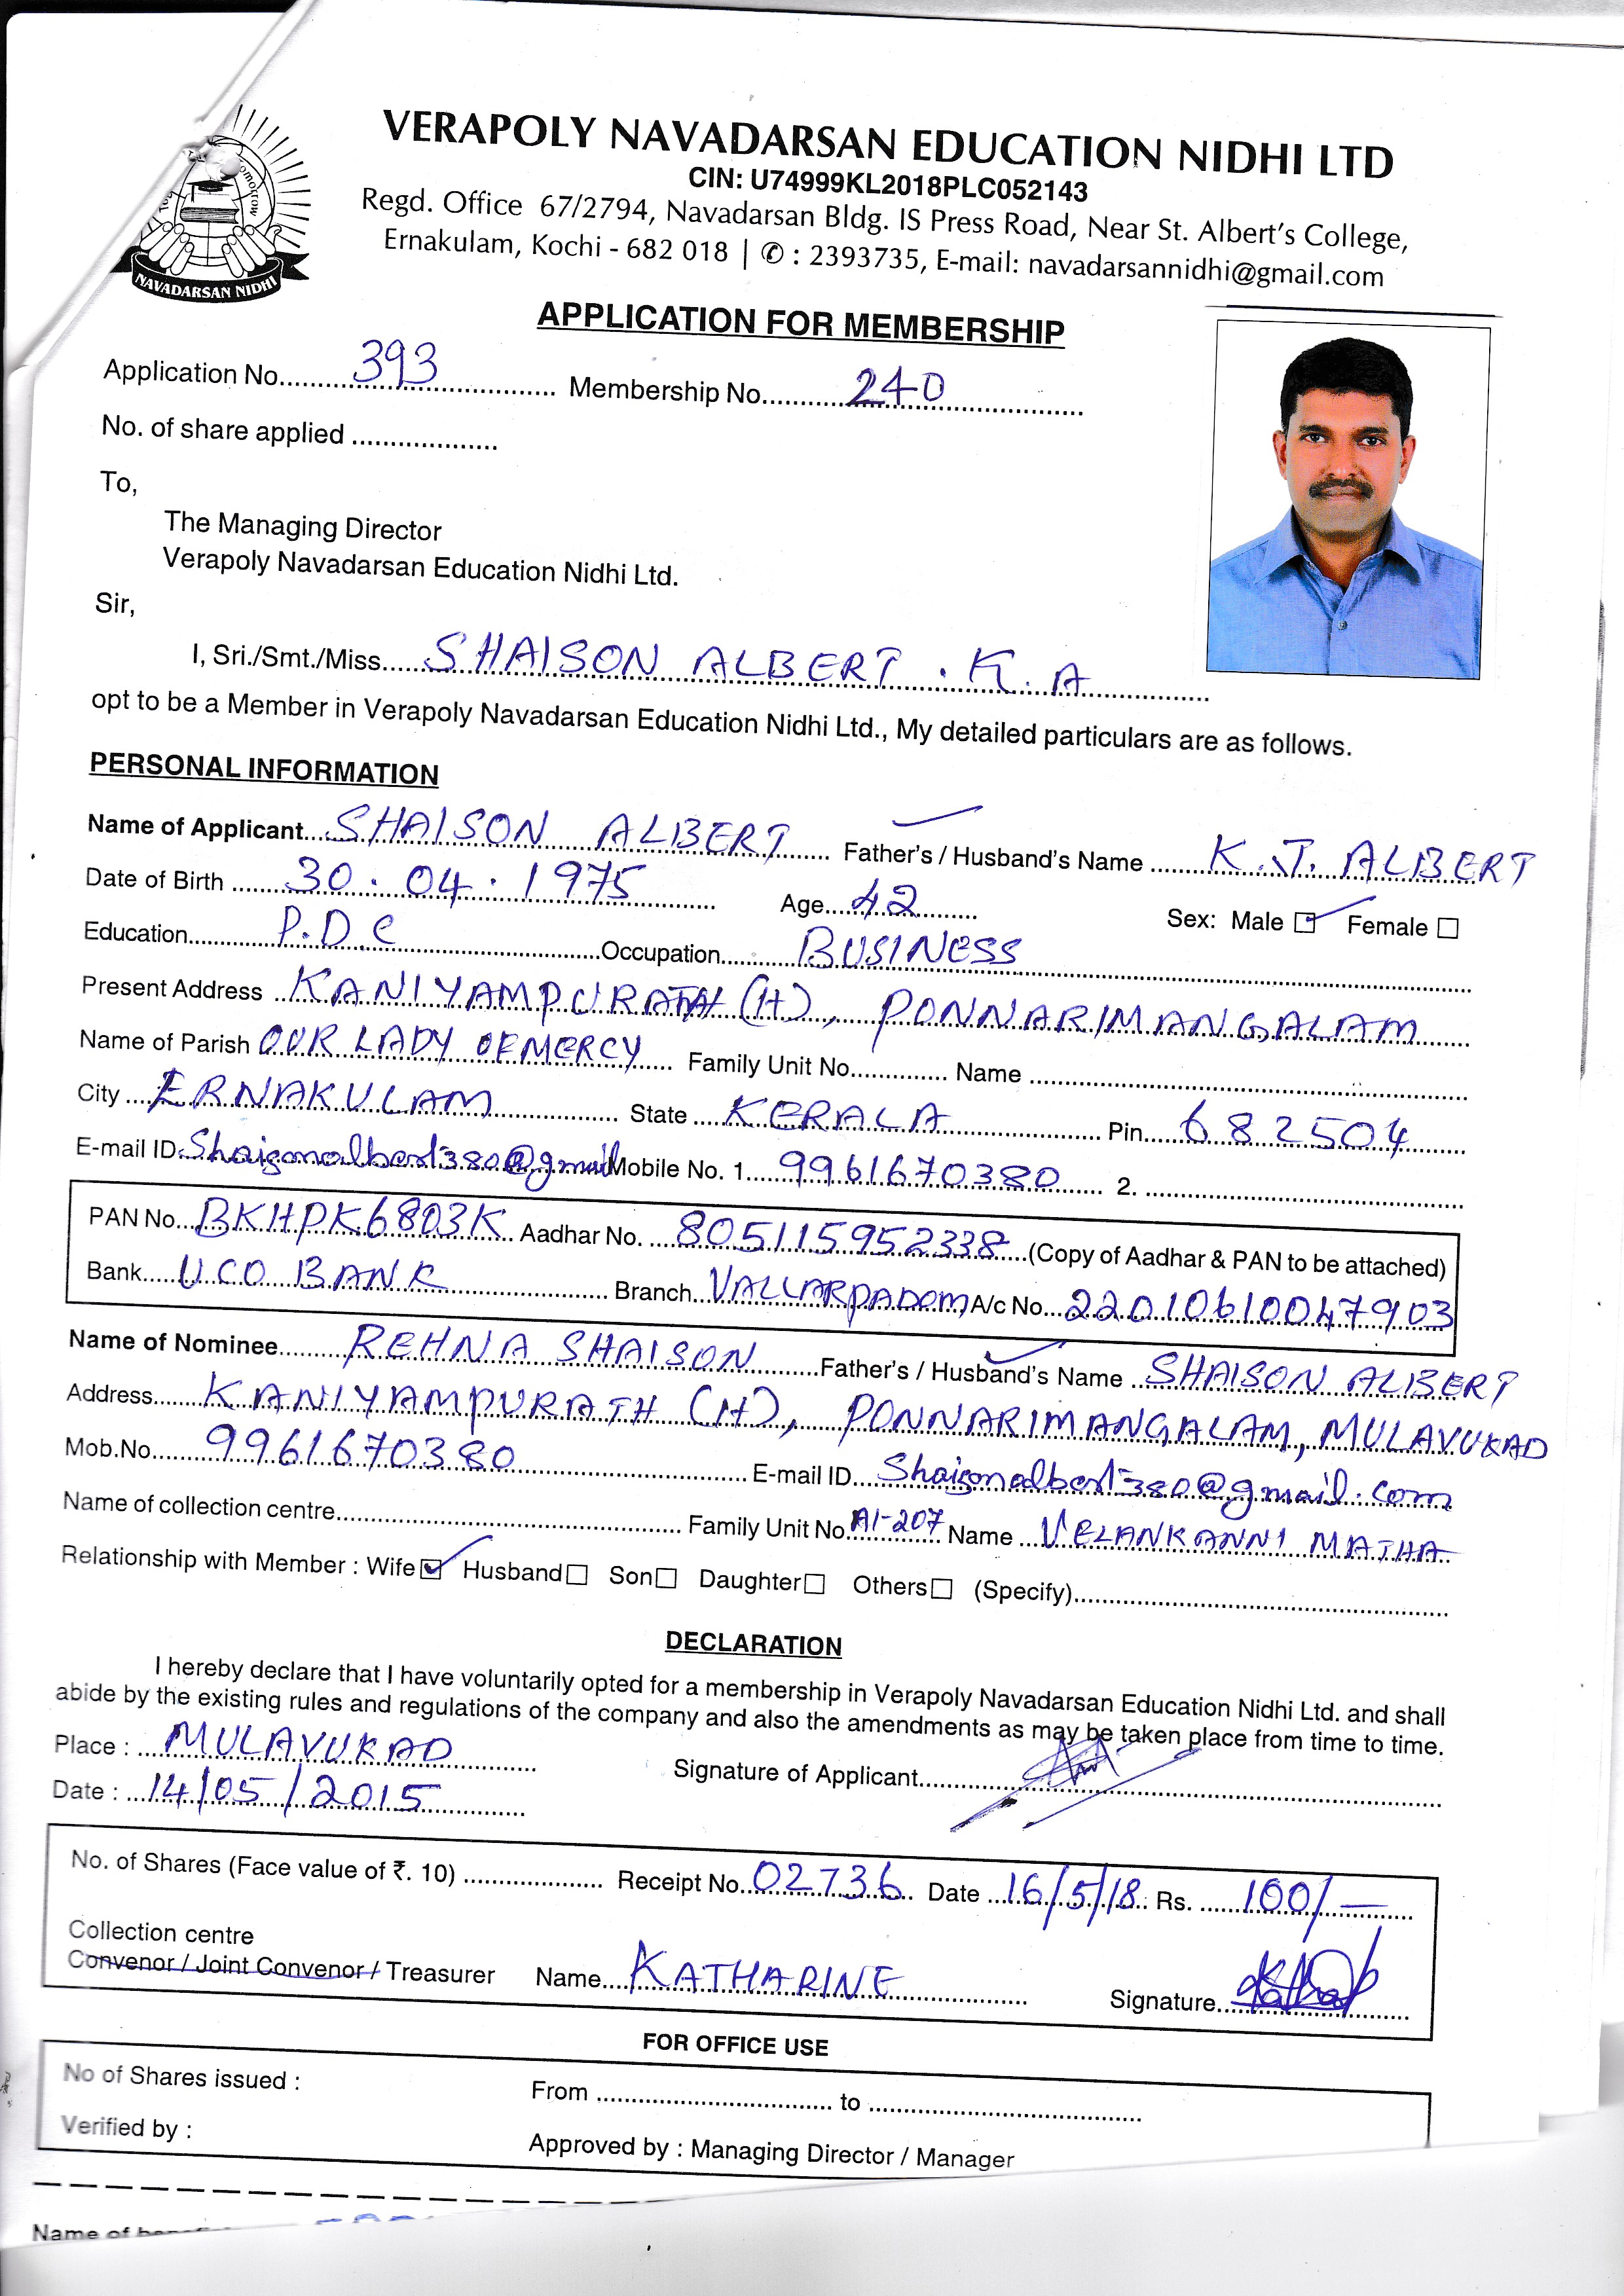 VERAPOLY NAVADARSAN EDUCATION NIDHI LTD
CIN: U74999KL2018PLC052143
Regd. Office 67/2794, Navadarsan Bldg. IS Press Road, Near St. Albert's College,
Ernakulam, Kochi - 682 018 | ✆ : 2393735, E-mail: navadarsannidhi@gmail.com
omorrow
NAVADARSAN NIDHI
APPLICATION FOR MEMBERSHIP
Application No. 393 Membership No. 240
No. of share applied
To,
The Managing Director
Verapoly Navadarsan Education Nidhi Ltd.
Sir,
I, Sri./Smt./Miss SHAISON ALBERT . K. A
opt to be a Member in Verapoly Navadarsan Education Nidhi Ltd., My detailed particulars are as follows.
PERSONAL INFORMATION
Name of Applicant SHAISON ALBERT Father's / Husband's Name K.J. ALBERT
Date of Birth 30.04.1975 Age 42 Sex: Male Female
Education P.D.C Occupation BUSINESS
Present Address KANIYAMPURATH (H), PONNARIMANGALAM
Name of Parish OUR LADY OF MERCY Family Unit No. Name
City ERNAKULAM State KERALA Pin 682504
E-mail ID Shaisonalbert380@gmail Mobile No. 1. 9961670380 2.
PAN No. BKHPK6803K Aadhar No. 805115952338 (Copy of Aadhar & PAN to be attached)
Bank UCO BANK Branch VALLARPADOM A/c No. 22010610047903
Name of Nominee REHNA SHAISON Father's / Husband's Name SHAISON ALBERT
Address KANIYAMPURATH (H), PONNARIMANGALAM, MULAVUKAD
Mob.No. 9961670380 E-mail ID Shaisonalbert380@gmail.com
Name of collection centre Family Unit No. A1-207 Name VELANKANNI MATHA
Relationship with Member : Wife Husband Son Daughter Others (Specify)
DECLARATION
I hereby declare that I have voluntarily opted for a membership in Verapoly Navadarsan Education Nidhi Ltd. and shall
abide by the existing rules and regulations of the company and also the amendments as may be taken place from time to time.
Place : MULAVUKAD
Signature of Applicant
Date : 14/05/2015
No. of Shares (Face value of ₹. 10) Receipt No. 02736 Date 16/5/18 Rs. 100/-
Collection centre
Convenor / Joint Convenor / Treasurer Name KATHARINE Signature
FOR OFFICE USE
No of Shares issued : From to
Verified by : Approved by : Managing Director / Manager
Name of